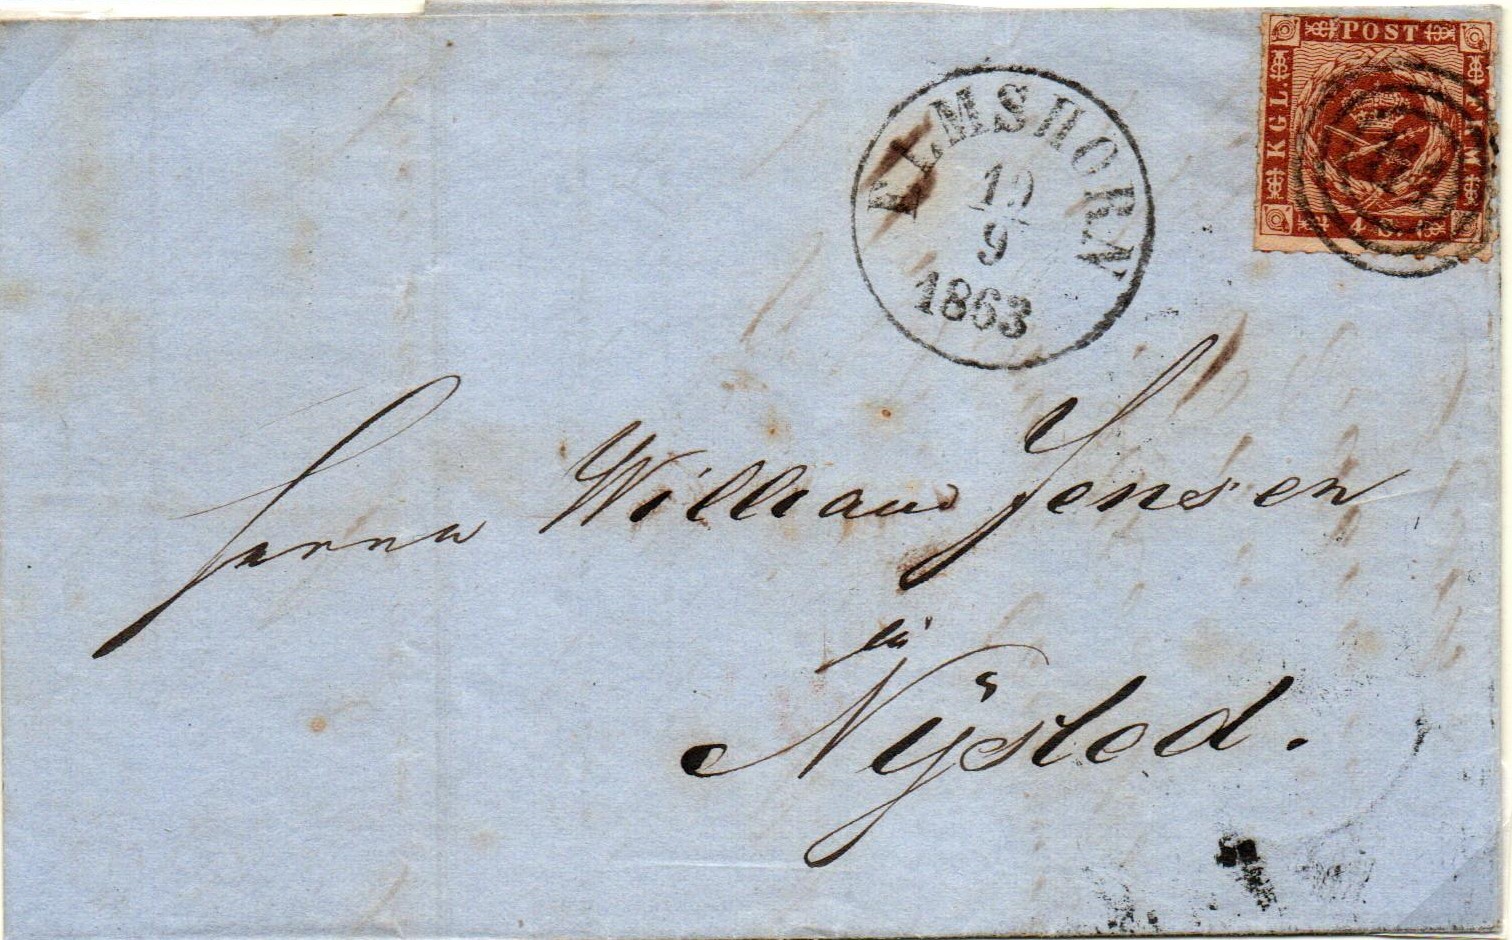 KGL POST FRM
4 S.
ELMSHORN
19
9
1863
Herrn William Jensen
in
Nÿsted.